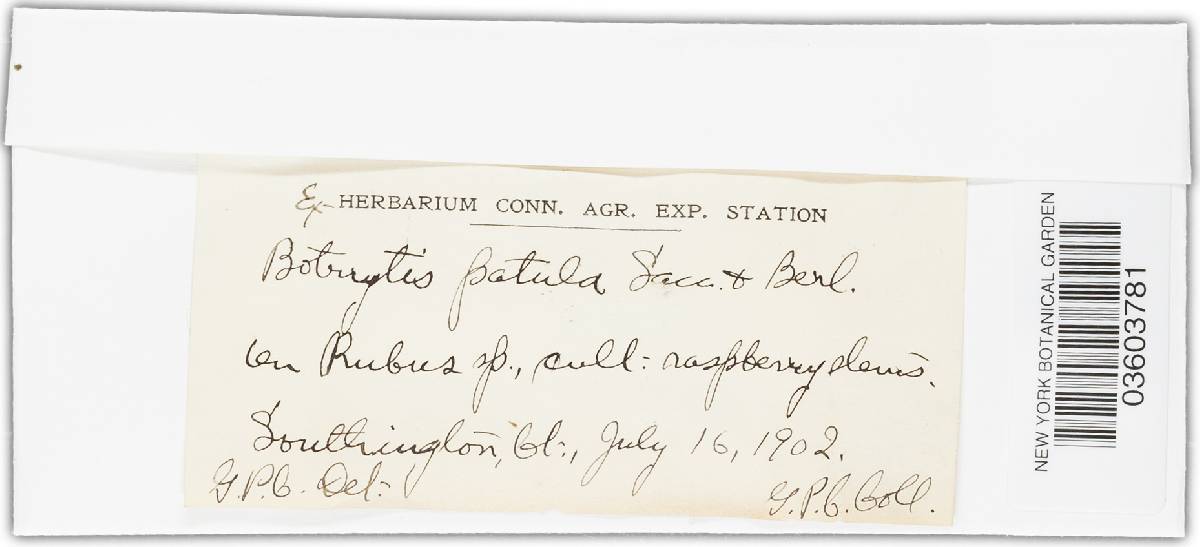 Ex- HERBARIUM CONN. AGR. EXP. STATION
Botrytis patula Sacc. & Berl.
on Rubus sp., cult. raspberry stems.
Southington, Ct., July 16, 1902.
G.P.C. Det.
G.P.C. Coll.
NEW YORK BOTANICAL GARDEN
03603781